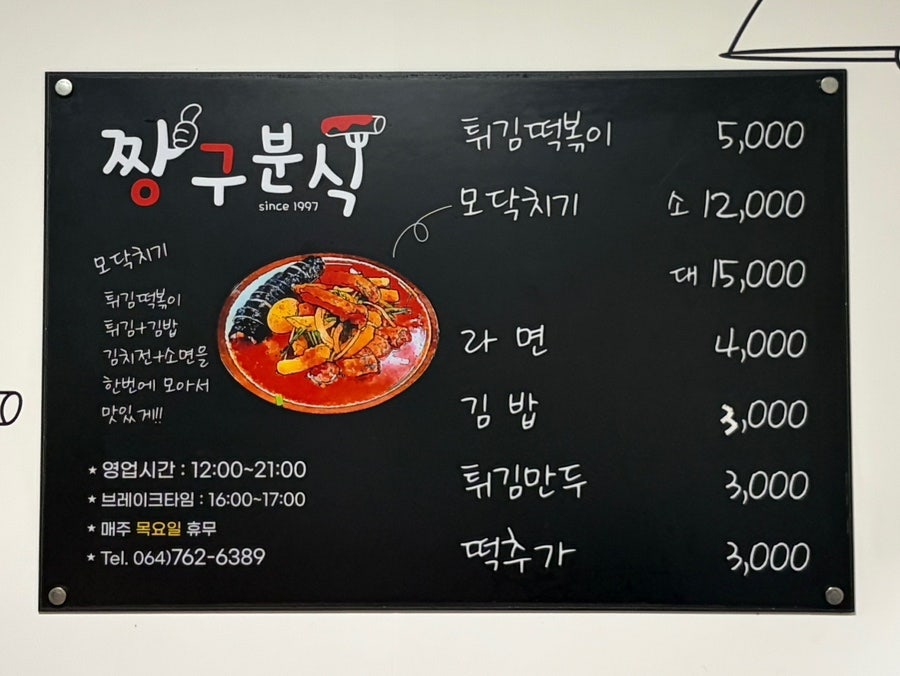 짱구분식
since 1997
모닥치기
튀김떡볶이
튀김+김밥
김치전+소면을
한번에 모아서
맛있게!!
★ 영업시간 : 12:00~21:00
★ 브레이크타임 : 16:00~17:00
★ 매주 목요일 휴무
★ Tel. 064)762-6389
튀김떡볶이 5,000
모닥치기 소 12,000
대 15,000
라면 4,000
김밥 3,000
튀김만두 3,000
떡추가 3,000